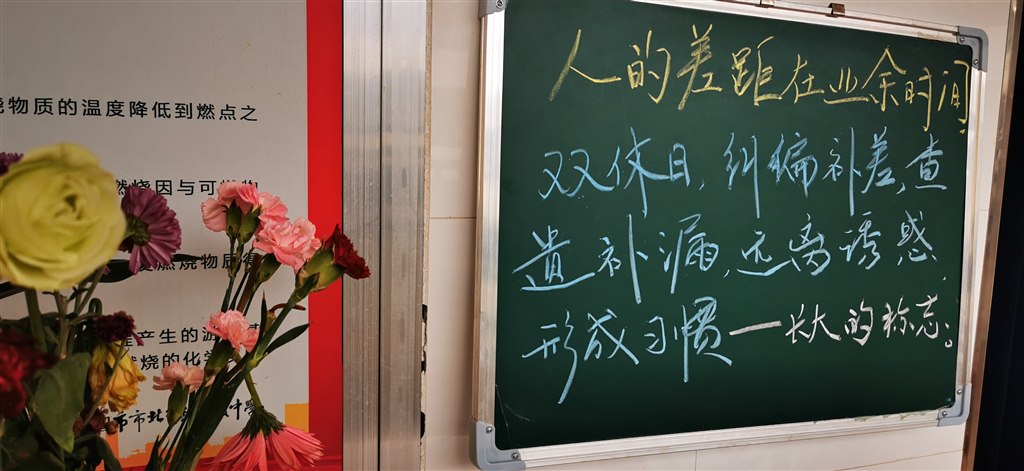 烧物质的温度降低到燃点之
燃烧因与可燃物
燃烧物质得
产生的游
燃烧的化学
市北
人的差距在业余时间
双休日,纠编补差,查
遗补漏,远离诱惑,
形成习惯一长大的标志。